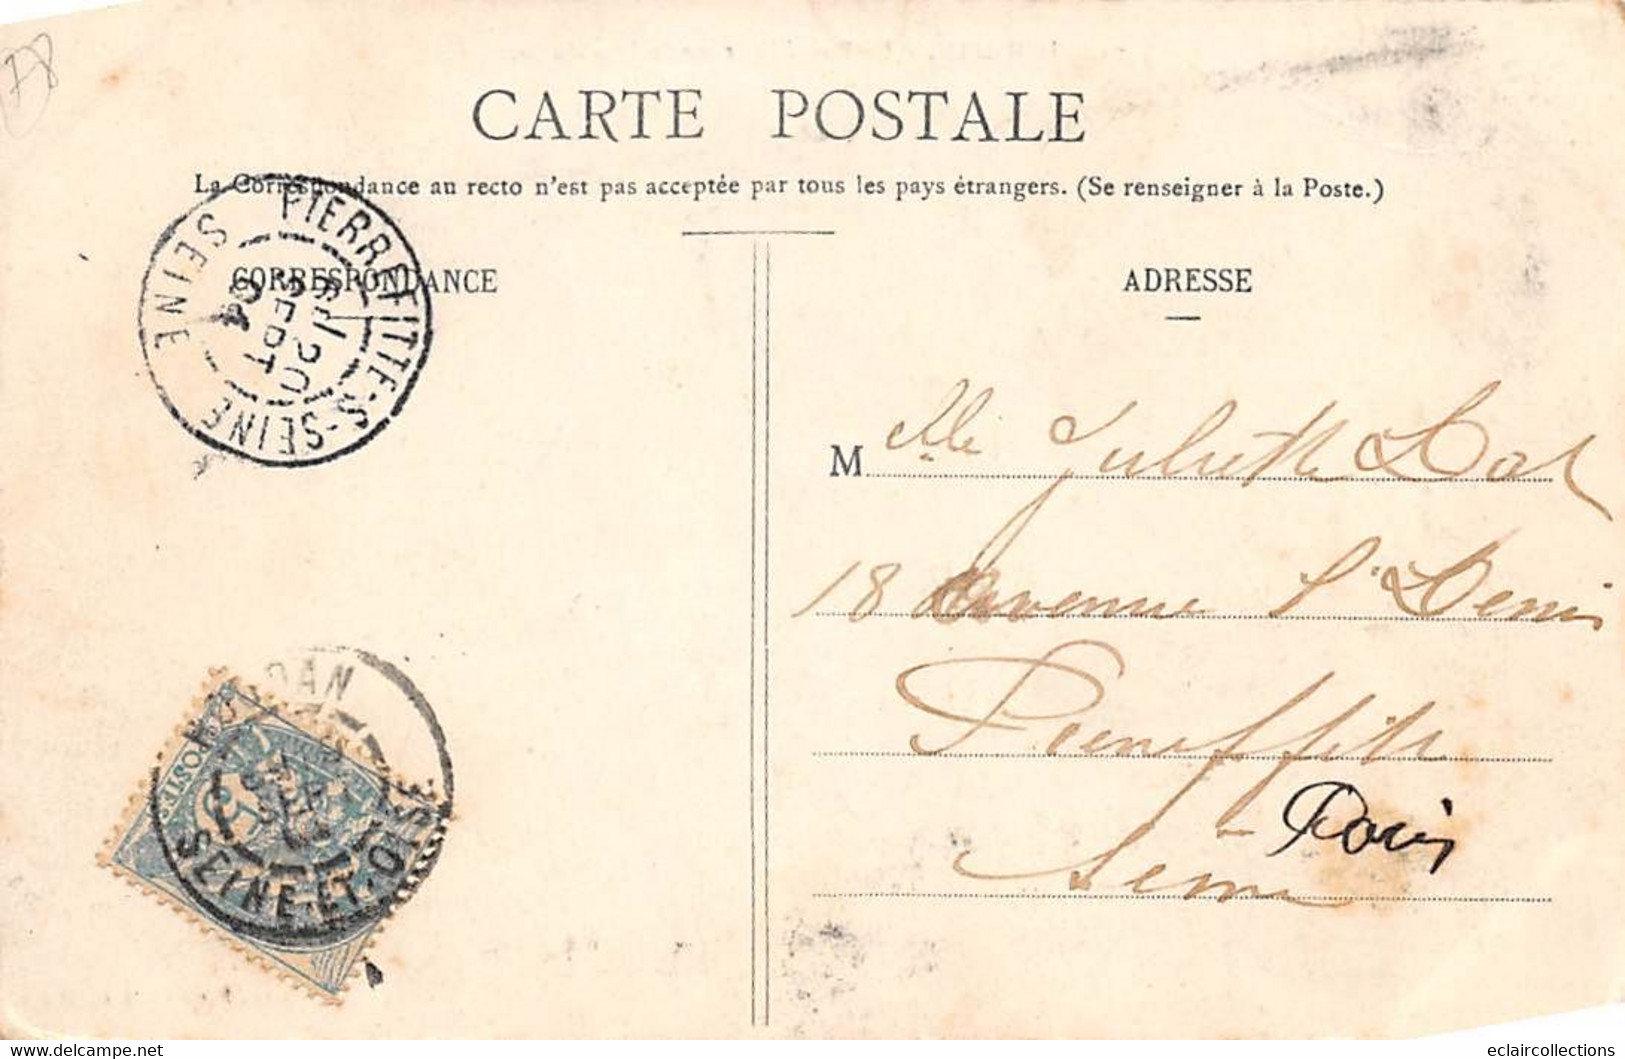 CARTE POSTALE
La Correspondance au recto n'est pas acceptée par tous les pays étrangers. (Se renseigner à la Poste.)
CORRESPONDANCE
ADRESSE
PIERREFITTE-S-SEINE
SEINE
20
SEPT
04
M Elle Juliette
18 Avenue St Denis
Pierrefitte
Seine
Paris
HOUDAN
SEINE-ET-OISE
www.delcampe.net
eclaircollections